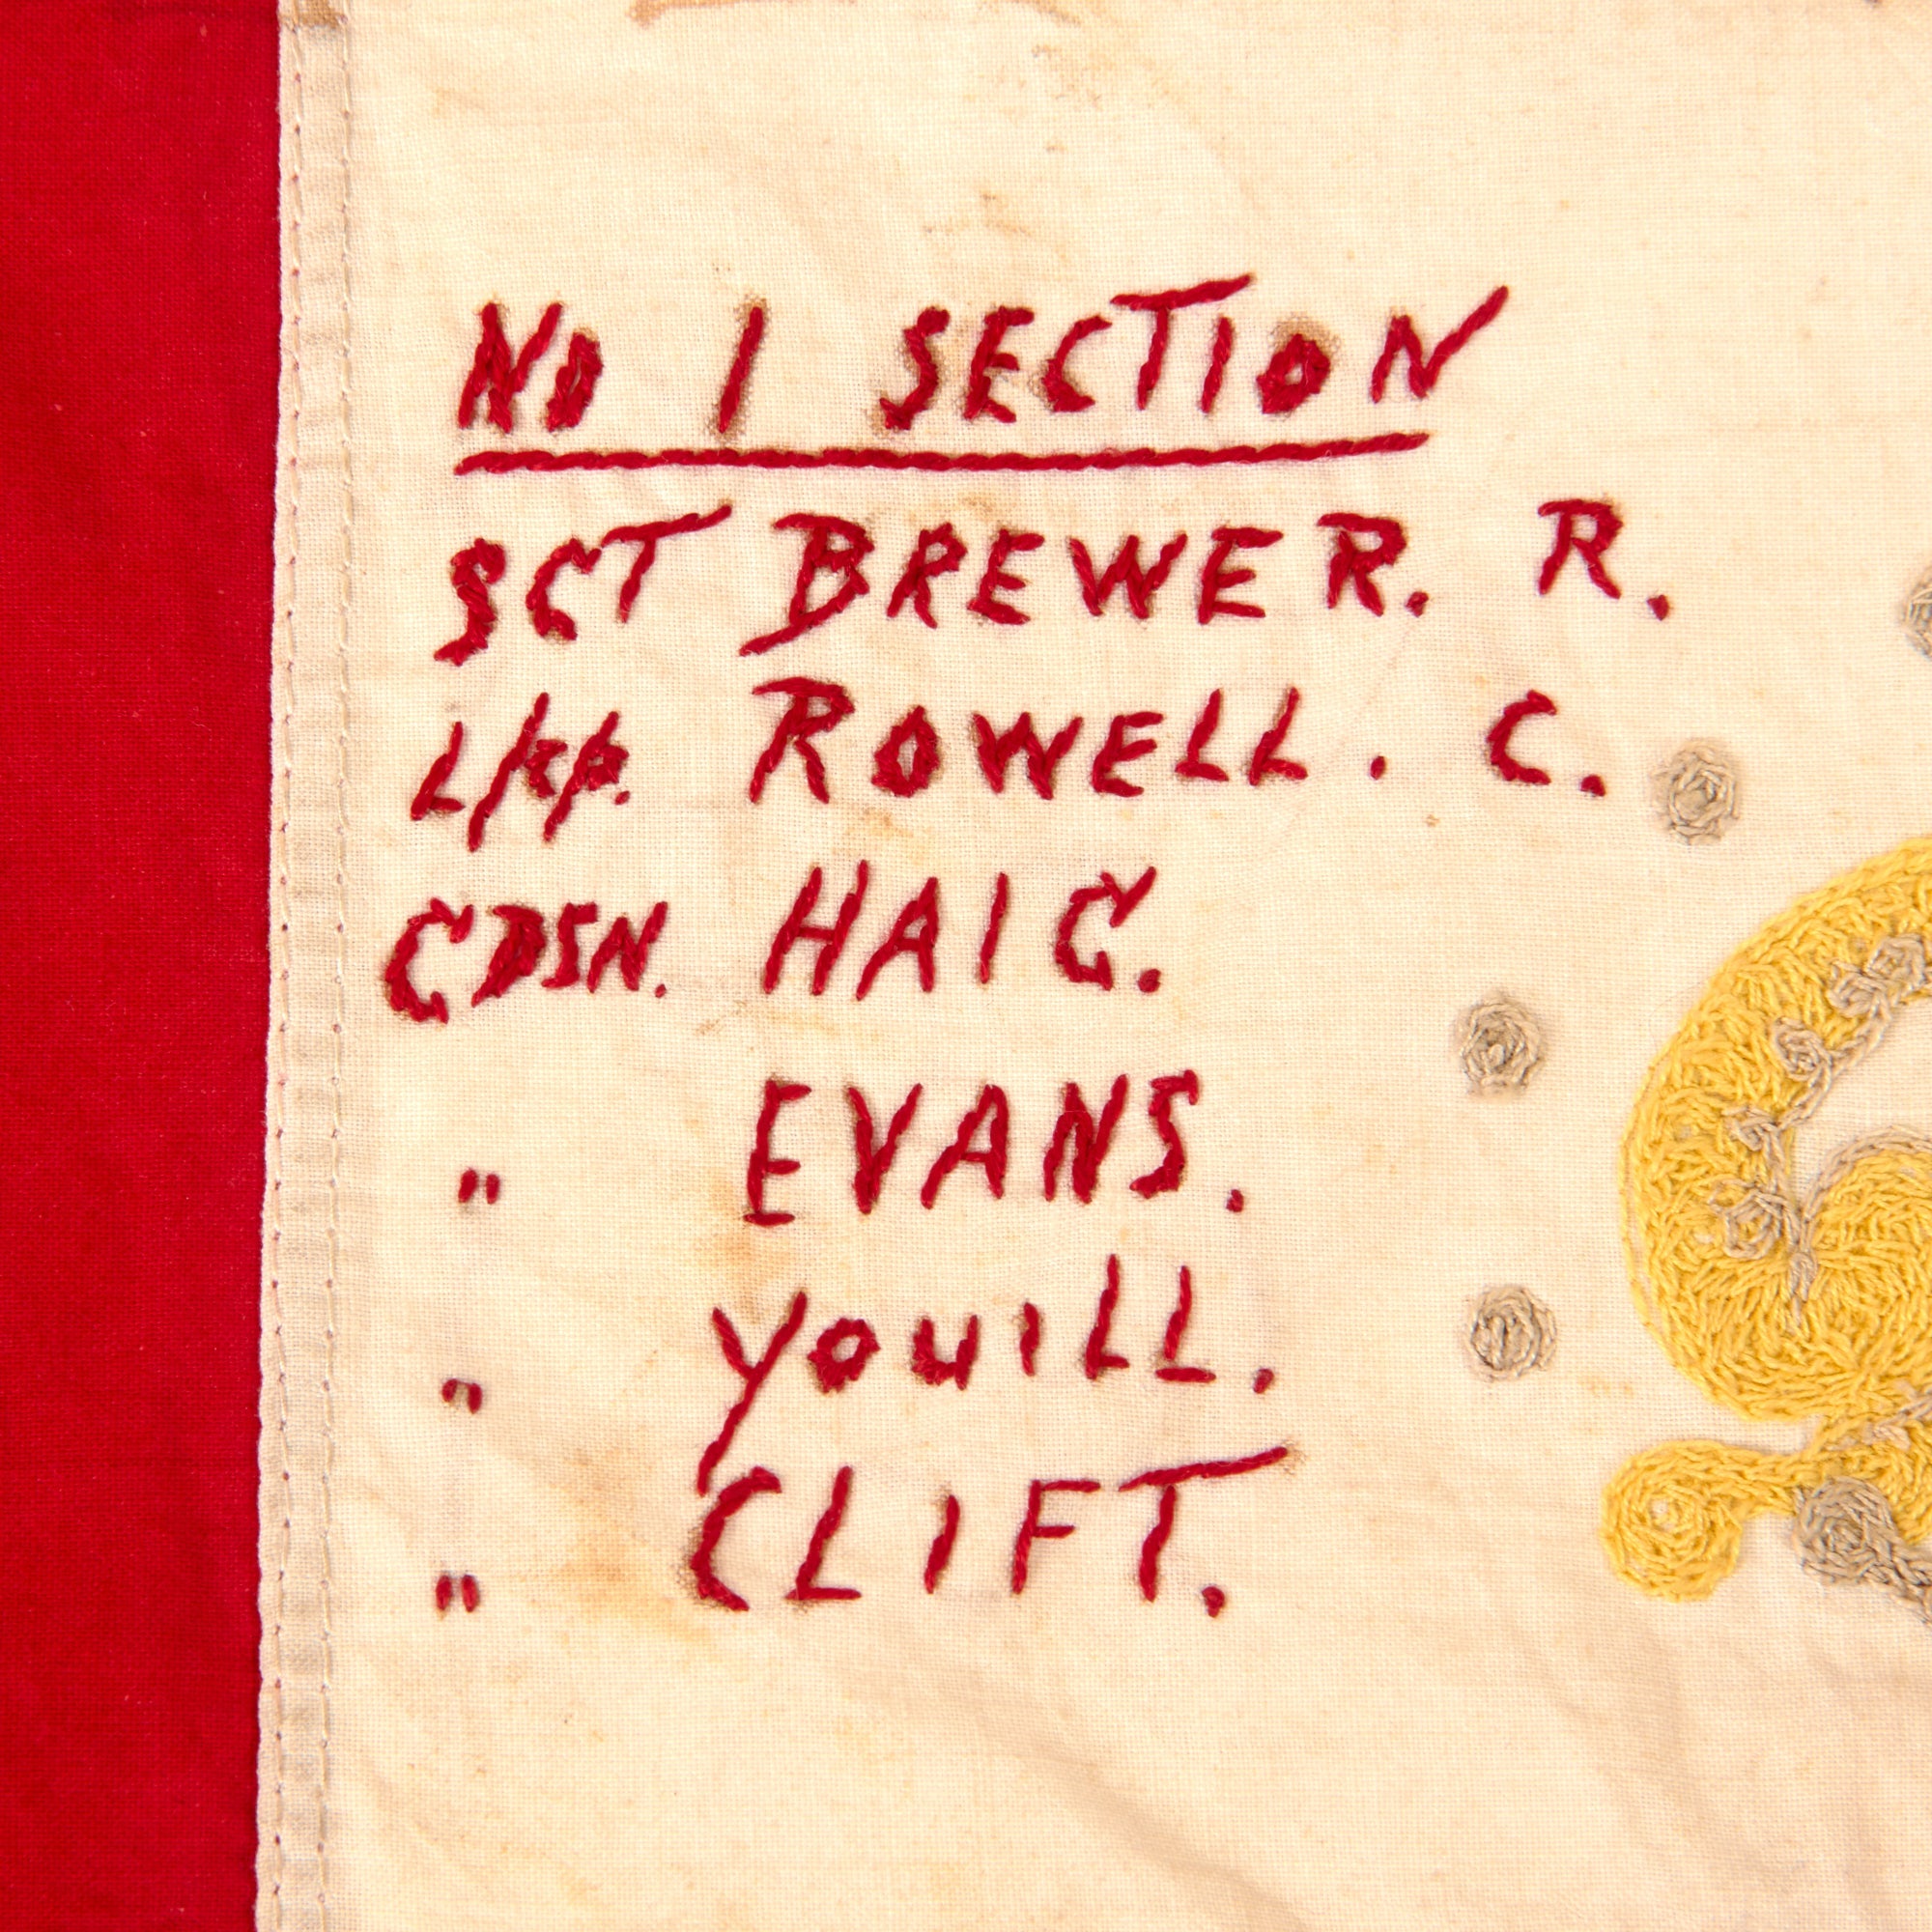 No 1 SECTION
SGT BREWER. R.
L/Cp. ROWELL. C.
GDSN. HAIG.
" EVANS.
" YOUILL.
" CLIFT.